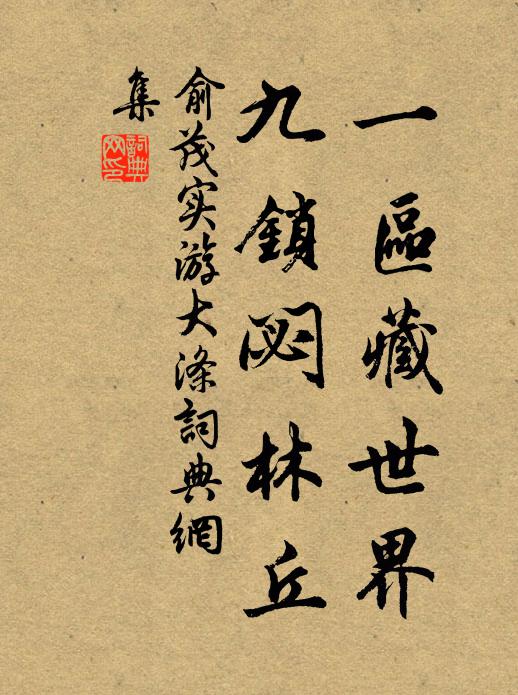 一區藏世界
九鎖閟林丘
俞茂实游大滌詞典網
集
詞典網印